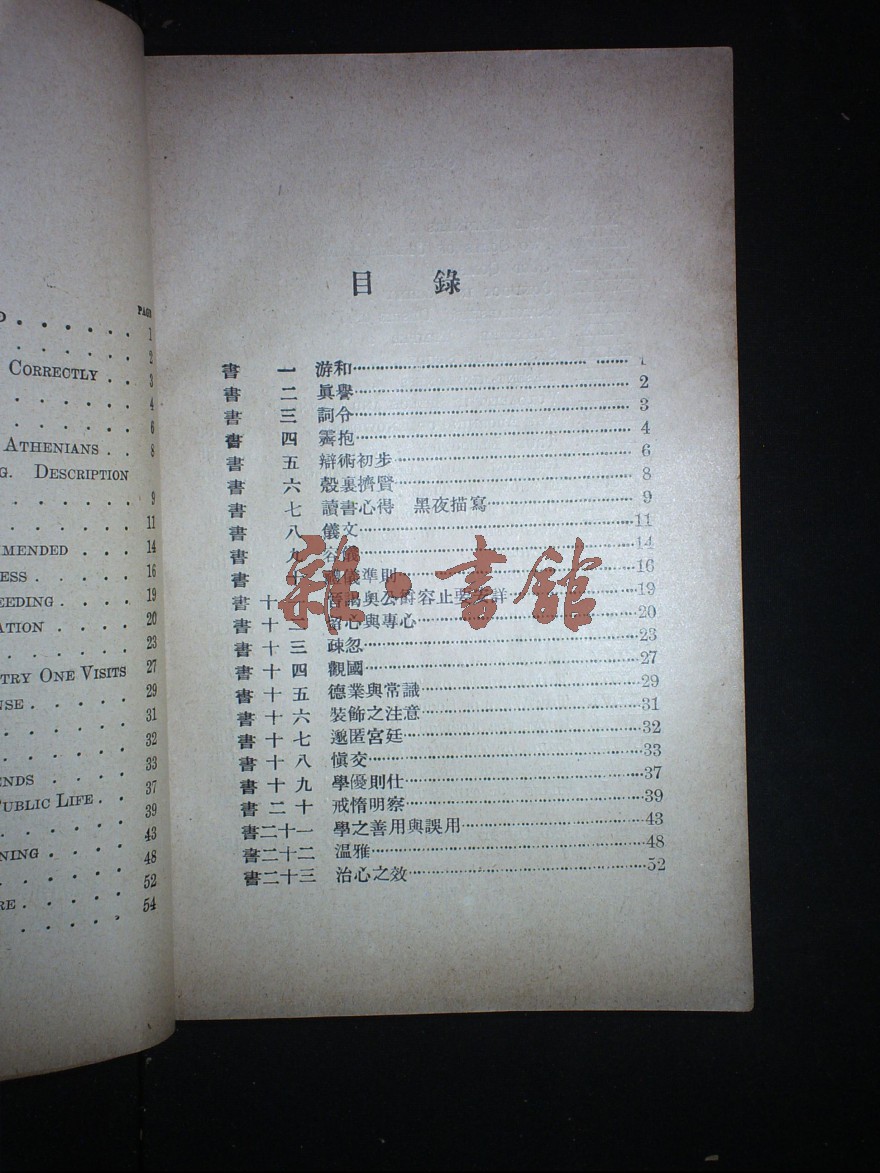 PAGE
1
2
CORRECTLY . . 3
4
6
ATHENIANS . 8
G. DESCRIPTION
9
11
MMENDED . . . 14
ESS . . . . . 16
EEDING . . . . 19
ATION . . . . 20
23
TRY ONE VISITS 27
NSE . . . . . 29
31
32
ENDS . . . . 33
PUBLIC LIFE . . 37
39
43
NING . . . . 48
52
RE . . . . . 54
目錄
書一 游和 1
書二 眞譽 2
書三 詞令 3
書四 霽抱 4
書五 辯術初步 6
書六 殼裏擠賢 8
書七 讀書心得 黑夜描寫 9
書八 儀文 11
書九 容儀 14
書十 禮儀準則 16
書十一 晉謁與公爵容止要安詳 19
書十二 留心與專心 20
書十三 疎忽 23
書十四 觀國 27
書十五 德業與常識 29
書十六 裝飾之注意 31
書十七 邈匿宮廷 32
書十八 愼交 33
書十九 學優則仕 37
書二十 戒惰明察 39
書二十一 學之善用與誤用 43
書二十二 温雅 48
書二十三 治心之效 52
雜·書館